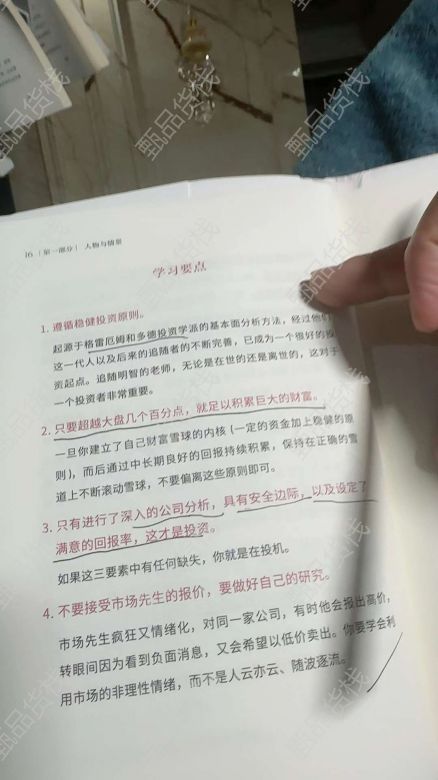 16 | 第一部分 | 人物与情景
学习要点
1. 遵循稳健投资原则。
起源于格雷厄姆和多德投资学派的基本面分析方法，经过他们
这一代人以及后来的追随者的不断完善，已成为一个很好的投
资起点。追随明智的老师，无论是在世的还是离世的，这对于
一个投资者非常重要。
2. 只要超越大盘几个百分点，就足以积累巨大的财富。
一旦你建立了自己财富雪球的内核（一定的资金加上稳健的原
则），而后通过中长期良好的回报持续积累，保持在正确的雪
道上不断滚动雪球，不要偏离这些原则即可。
3. 只有进行了深入的公司分析，具有安全边际，以及设定了
满意的回报率，这才是投资。
如果这三要素中有任何缺失，你就是在投机。
4. 不要接受市场先生的报价，要做好自己的研究。
市场先生疯狂又情绪化，对同一家公司，有时他会报出高价，
转眼间因为看到负面消息，又会希望以低价卖出。你要学会利
用市场的非理性情绪，而不是人云亦云、随波逐流。
甄品货栈